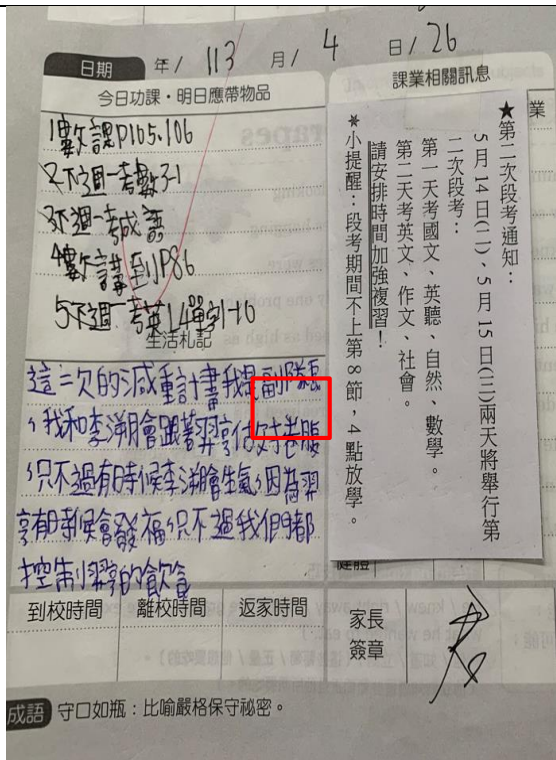 日期 年/ 113 月/ 4 日/ 26
今日功課・明日應帶物品
1數課P105.106
2下週一考數3-1
3下週一考成語
4數講到P86
5下週一考英L4單字1-16
生活札記
這二次的減重計畫我是副隊長
,我和李溯會跟著羿享仗對卷腹
,只不過有時候李溯會生氣,因為羿
享有時候會發福,只不過我們都
控制羿享的飲食
課業相關訊息
★第二次段考通知:
5月14日(二)、5月15日(三)兩天將舉行第
二次段考:
第一天考國文、英聽、自然、數學。
第二天考英文、作文、社會。
請安排時間加強複習!
*小提醒:段考期間不上第8節,4點放學。
業
健體
到校時間 離校時間 返家時間 家長
簽章
成語 守口如瓶:比喻嚴格保守祕密。